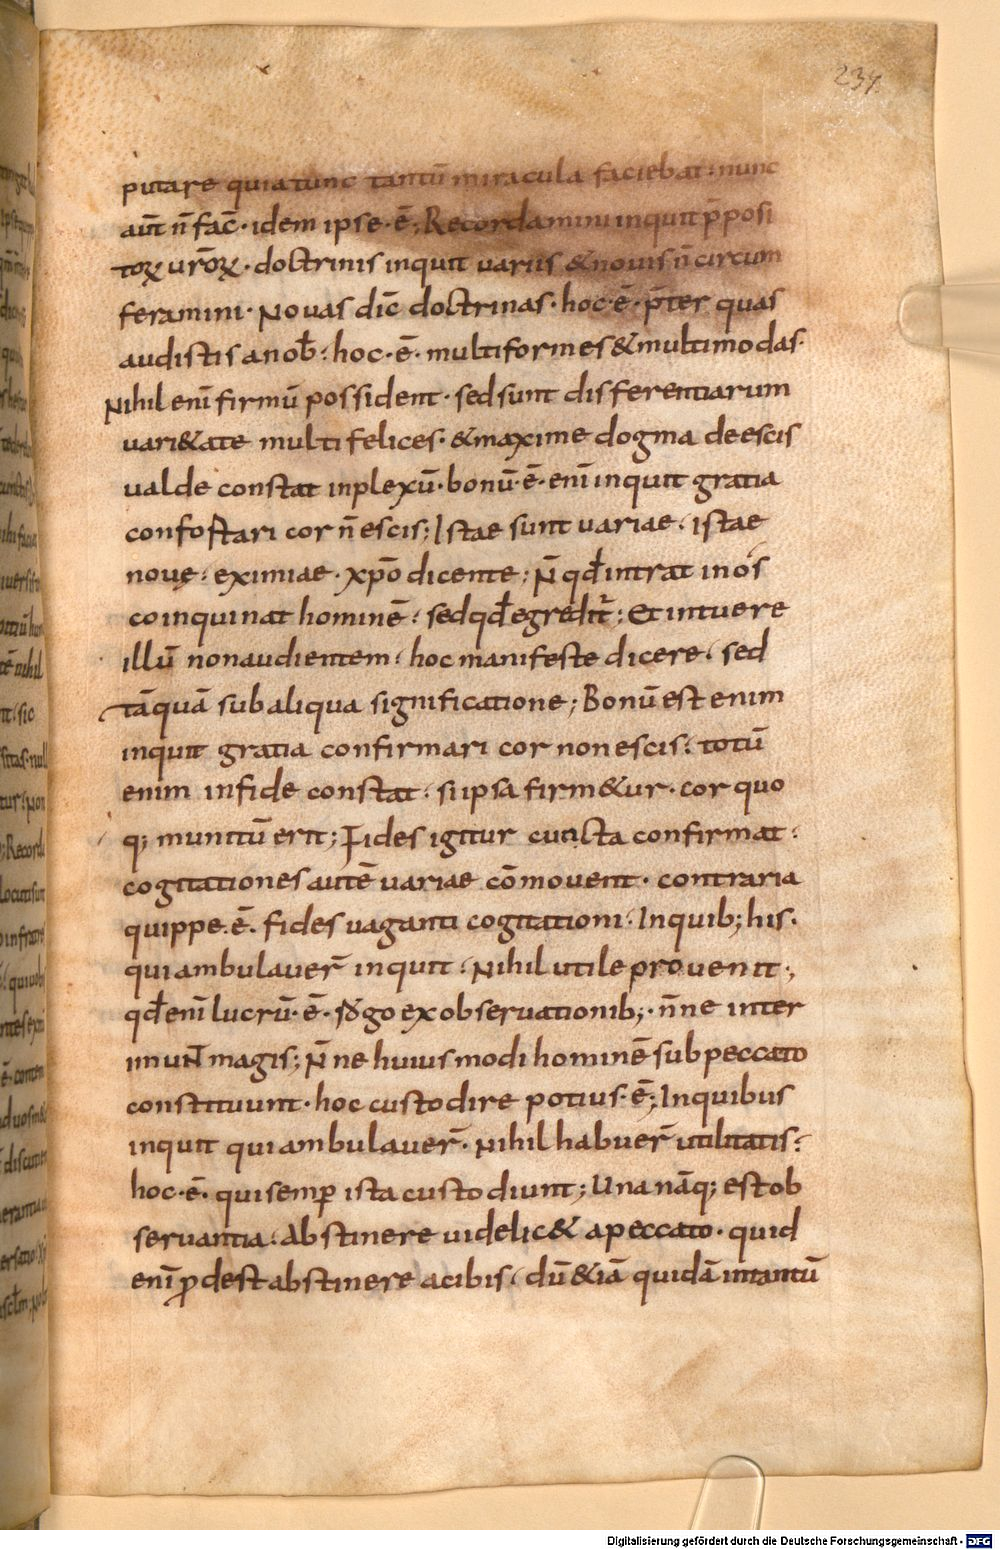 237.
putare quia tunc tantū miracula faciebat. nunc
aūt n̄ fac̄. idem ipse. ē; Recordamini inquit p̄posi
toꝝ urōꝝ. doctrinis inquit variis & novis n̄ circum
feramini. Novas dic̄ doctrinas. hoc. ē. p̄ter quas
audistis a nob̄. hoc. ē. multiformes & multimodas.
Nihil enī firmū possident. sed sunt differentiarum
vari&ate multifelices. & maxime dogma de escis
valde constat inplexū. bonū. ē. enī inquit gratia
confortari cor n̄ escis; Istae sunt variae. istae
novę. eximiae. xp̄o dicente; N̄ qd̄ intrat in os
coinquinat hominē. sed qd̄ egredit̄; Et intuere
illū non audientem. hoc manifeste dicere. sed
tāquā sub aliqua significatione; Bonū est enim
inquit gratia confirmari cor non escis. totū
enim in fide constat. si ipsa firm&ur. cor quo
q; munitū erit; Fides igitur cuncta confirmat.
cogitationes autē variae cōmovent. contraria
quippe. ē. fides vaganti cogitationi. Inquib; his.
qui ambulaver̄ inquit. Nihil utile provenit;
qd̄ enī lucrū. ē. rogo ex observationib;. n̄ne inter
imunt magis; N̄ne huius modi hominē sub peccato
constituunt. hoc custodire potius. ē; Inquibus
inquit qui ambulaver̄. Nihil habuer̄ utilitatis.
hoc. ē. qui semꝑ ista custodiunt; Una nāq; est ob
servantia. Abstinere videlic& a peccato. quid
enī ꝓdest abstinere a cibis. dū &iā quidā intantū
Digitalisierung gefördert durch die Deutsche Forschungsgemeinschaft - DFG